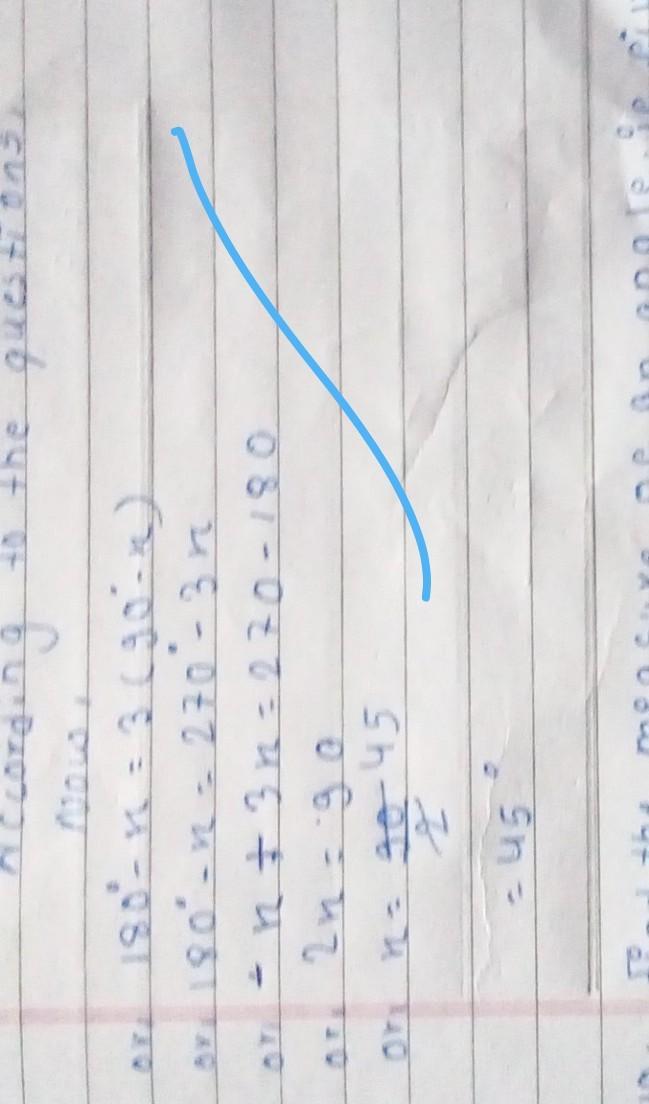 According to the questions,
Now,
or, 180° - x = 3 (90° - x)
or, 180° - x = 270° - 3x
or, - x + 3x = 270 - 180
or, 2x = 90
or, x = 90 45
2
= 45°
the measure of an angle